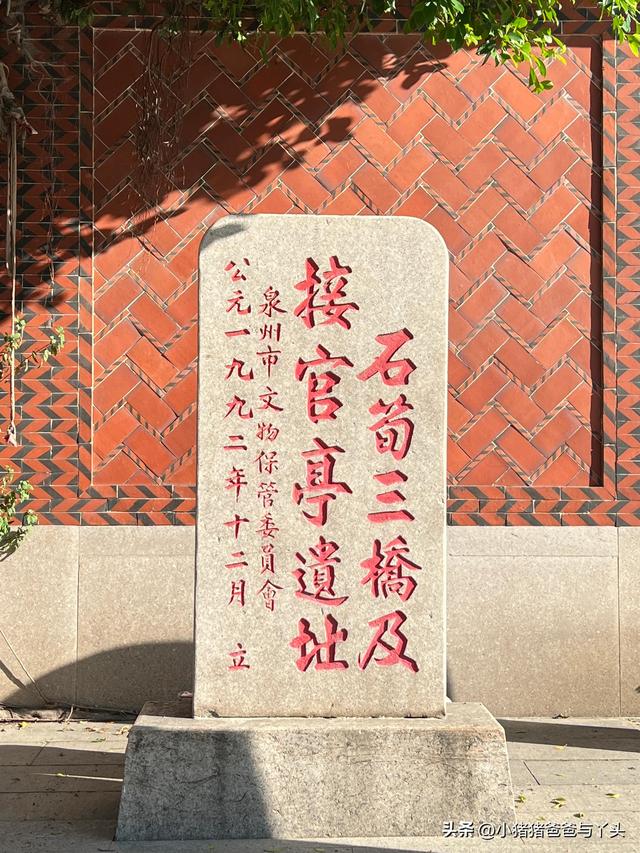 石荀三橋及
接官亭遺址
泉州市文物保管委員會
公元一九九二年十二月 立
头条 @小猪猪爸爸与丫头